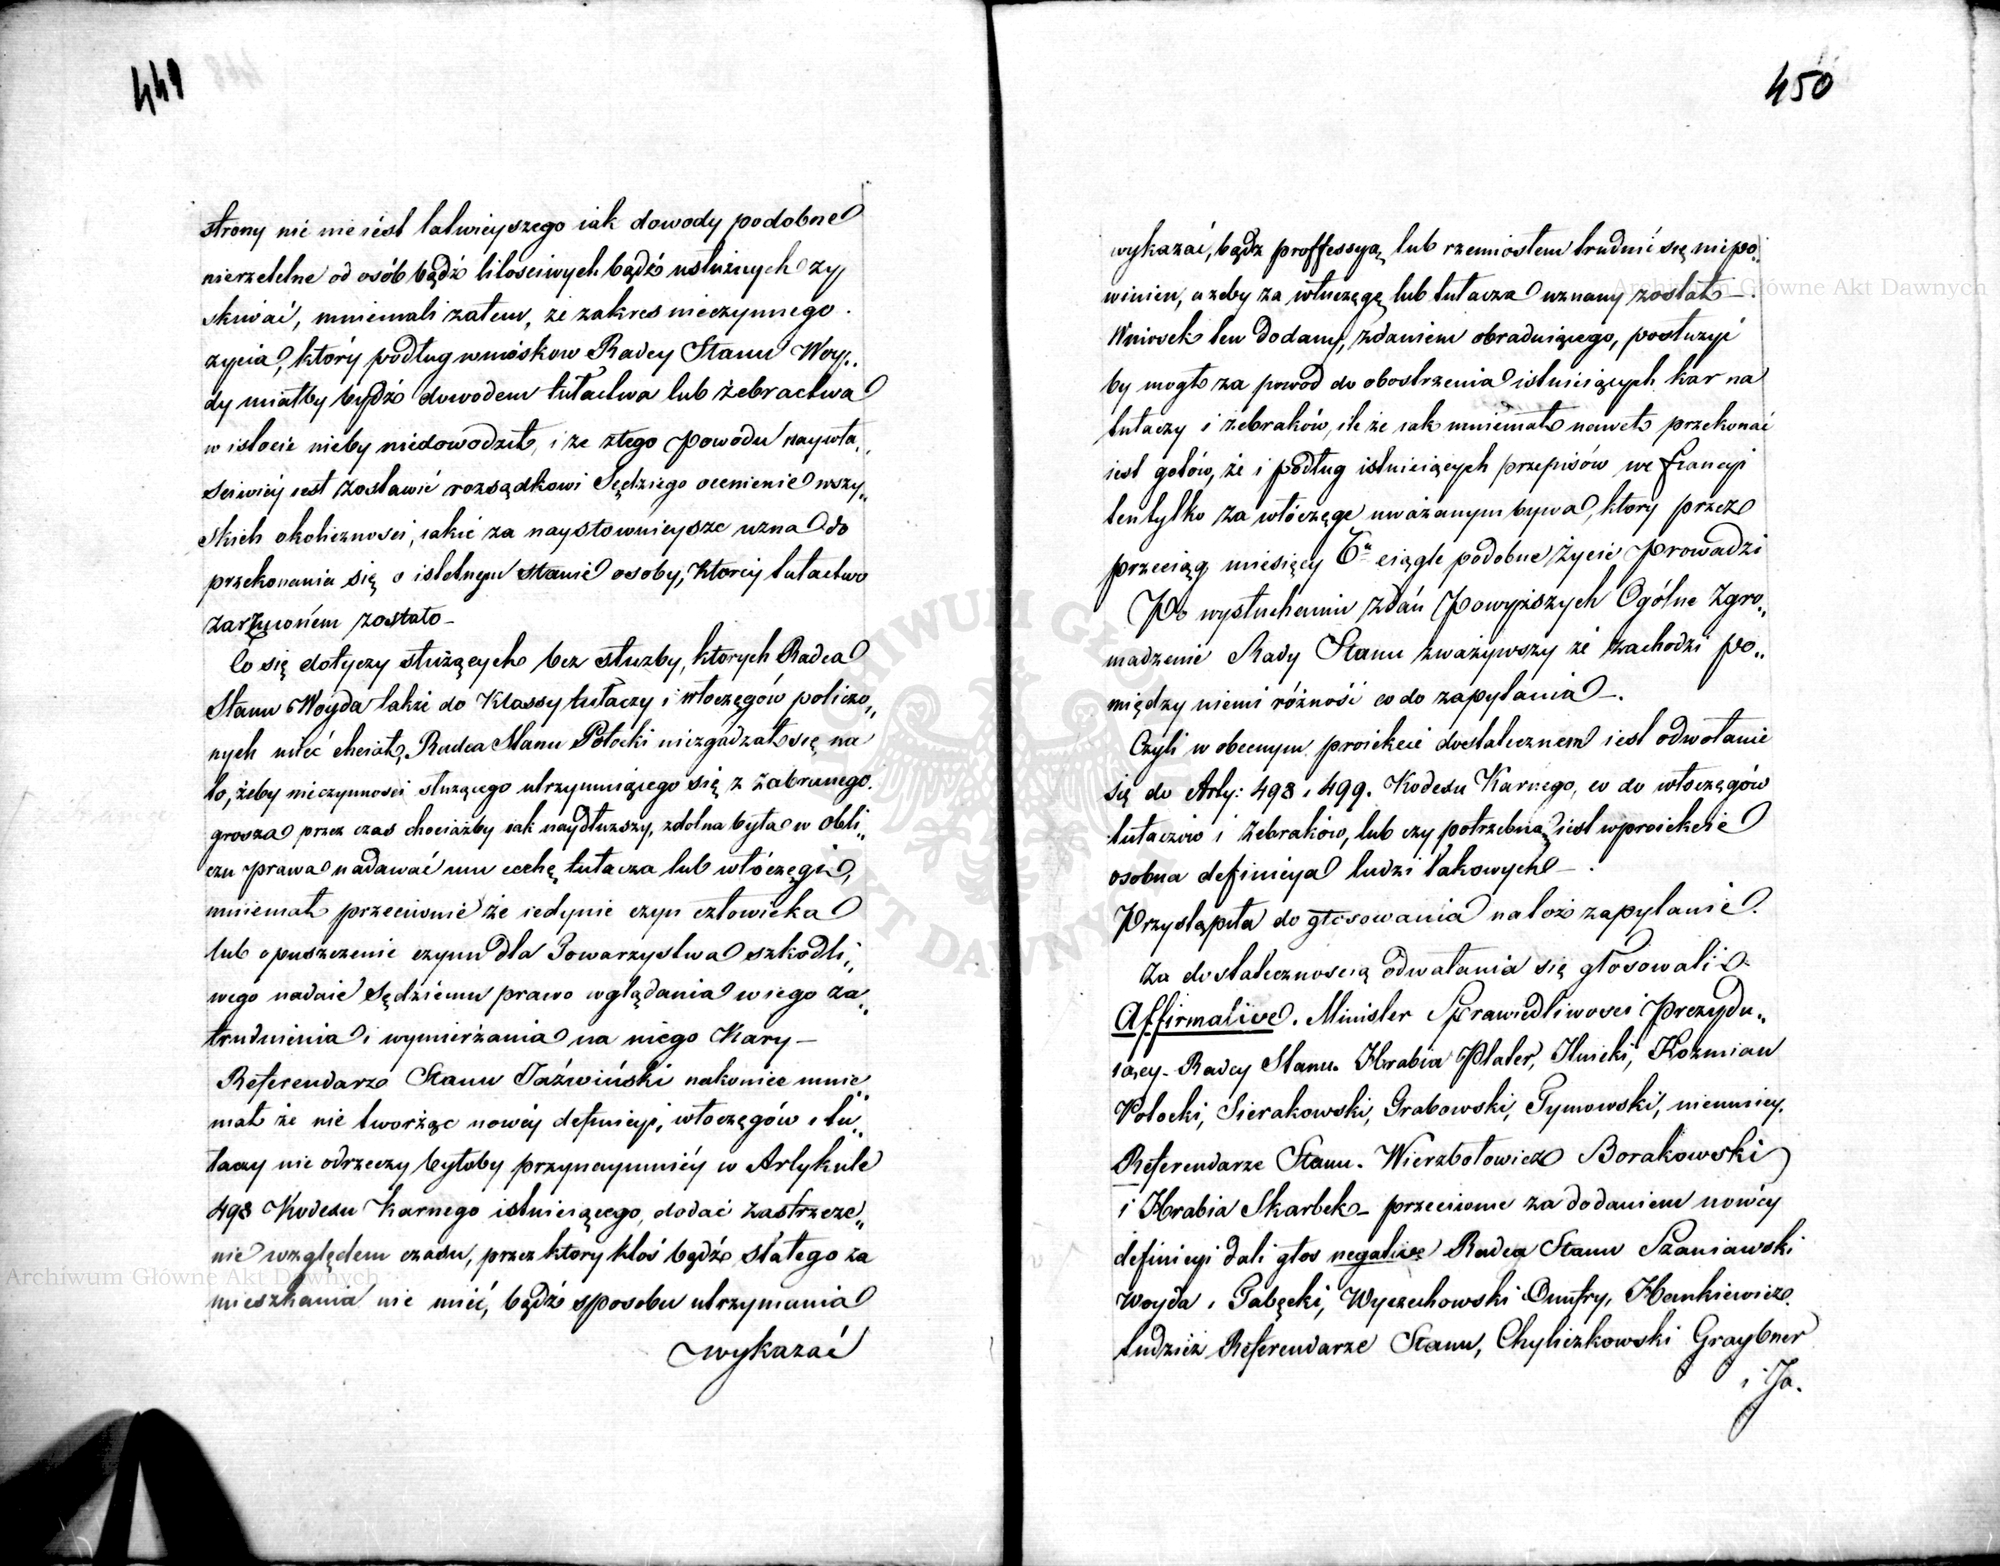 449
strony nic nie iest łatwieyszego iak dowody podobne
nierzetelne od osób bądź litościwych bądź usłużnych zy
skiwać, mniemali zatem, że zakres nieczynnego
życia, który podług wniosków Radcy Stanu Woy„
dy miałby bydź dowodem tułactwa lub żebractwa
w istocie nicby niedowodził, i że z tego powodu naywła„
ściwiéy iest zostawić rozsądkowi Sędziego ocenienie wszy„
skich okoliczności, iakie za naystosownieysze uzna do
przekonania się o istotnym stanie osoby, któréy tułactwo
zarzuconém zostało –
Co się dotyczy służących bez służby, których Radca
Stanu Woyda także do Klassy tułaczy i włoczęgów policzo„
nych mieć chciał, Radca Stanu Potocki niezgadzał się na
to, żeby nieczynności służącego utrzymuiącego się z zabranego
grosza przez czas chociażby iak naydłuższy, zdolna była w obli„
czu prawa nadawać mu cechę tułacza lub włóczęgi,
mniemał przeciwnie że iedynie czyn człowieka
lub opuszczenie czynu dla Towarzystwa szkodli„
wego nadaie Sędziemu prawo wglądania w iego za„
trudnienia i wymierzania na niego Kary –
Referendarz Stanu Jaźwiński nakoniec mnie„
mał że nie tworząc nowéy definicyi, włoczęgów i tu„
łaczy nie odrzeczy byłoby przynaymniéy w Artykule
498 Kodexu Karnego istnieiącego, dodać zastrzeże„
nie względem czasu, przez który ktoś bądź stałego za
mieszkania nie mieć, bądź sposobu utrzymania
wykazać
450
wykazać, bądź proffessyą lub rzemiosłem trudnić się niepo„
winien, ażeby za włuczęgę lub tułacza uznany został –.
Wniosek ten dodany, zdaniem obraduiącego, posłużyć
by mógł za powód do obostrzenia istnieiących kar na
tułaczy i żebraków, ile że iak mniemał nawet przekonać
iest gotów, że i podług istnieiących przepisów we francyi
ten tylko za włóczęgę uważanym bywa, który przez
przeciąg miesięcy 6u ciągle podobne życie prowadzi
Po wysłuchaniu zdań powyższych Ogólne Zgro„
madzenie Rady Stanu zważywszy że zachodzi po„
między niemi różność co do zapytania –.
Czyli w obecnym proiekcie dostatecznem iest odwołanie
się do Arty: 498 i 499. Kodexu Karnego, co do włoczęgów
tułaczów i żebraków, lub czy potrzebną iest w proiekcie
osobna definicya ludzi takowych – .
Przystąpiła do głosowania na toż zapytanie.
Za dostatecznością odwołania się głosowali
Affirmative. Minister Sprawiedliwości Prezydu„
iący. Radcy Stanu. Hrabia Plater, Ilnicki, Kozmian
Potocki, Sierakowski, Grabowski, Tymowski, niemniey.
Referendarze Stanu. Wierzbołowicz Borakowski
i Hrabia Skarbek – przeciwnie za dodaniem nowéy
definicyi dali głos negative Radca Stanu Szaniawski
Woyda, Tabęcki, Wyczechowski Onufry, Hankiewicz.
tudzież Referendarze Stanu, Chyliczkowski Graybner
i Ja.
Archiwum Główne Akt Dawnych
Archiwum Główne Akt Dawnych
ARCHIWUM GŁÓWNE AKT DAWNYCH